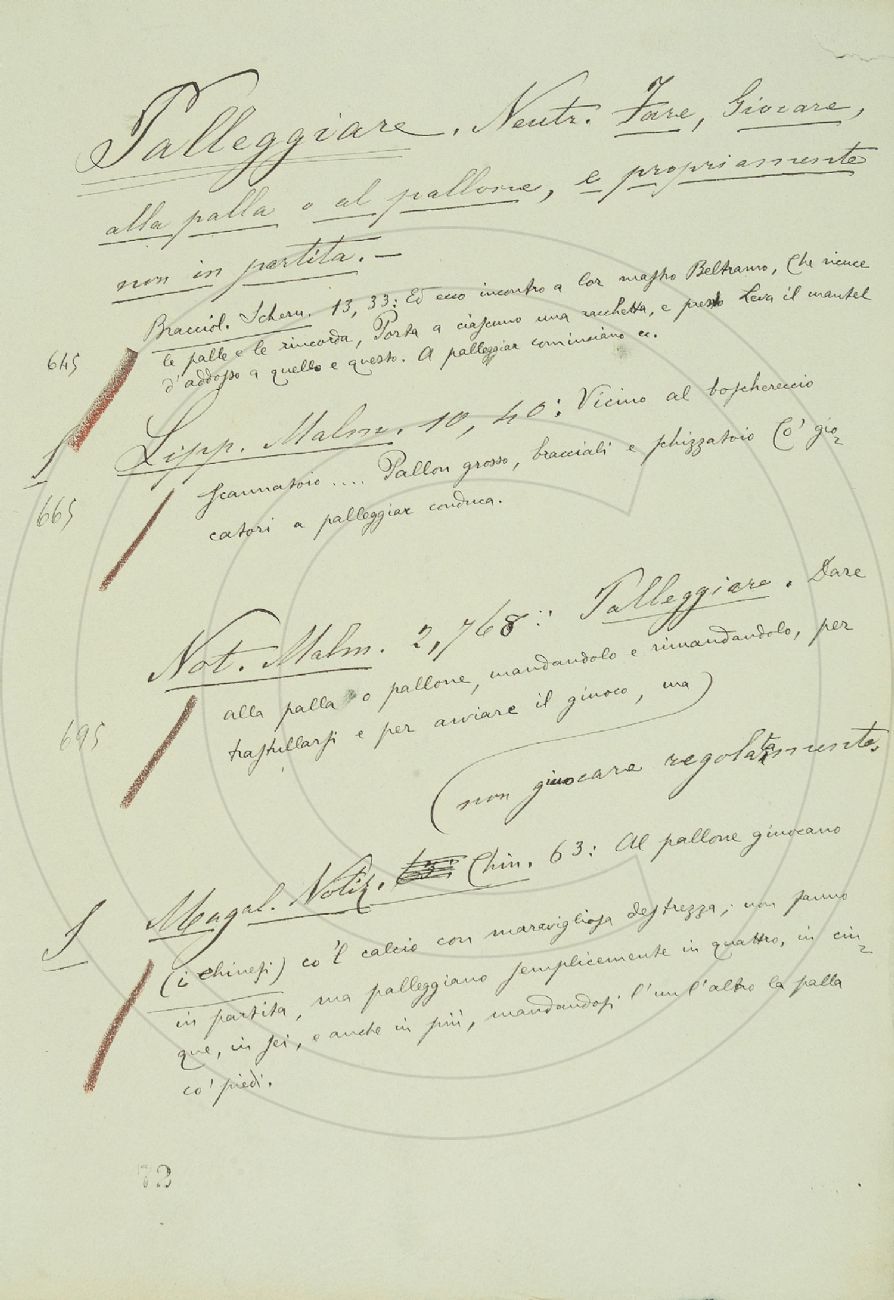 Palleggiare. Neutr. Fare, Giocare,
alla palla o al pallone, e propriamente
non in partita. —
Bracciol. Schern. 13, 33: Ed ecco incontro a lor mastro Beltramo, Che vience
le palle e le rincorda, Porta a ciascuno una racchetta, e presto Leva il mantel
645
d'addosso a quello e questo. A palleggiar cominciano ec.
S
Lipp. Malm. 10, 40: Vicino al boschereccio
scannatoio .... Pallon grosso, bracciali e schizzatoio Co' gio-
665
catori a palleggiar conduca.
Not. Malm. 2, 768: Palleggiare. Dare
alla palla o pallone, mandandolo e rimandandolo, per
695
trastullarsi e per avviare il giuoco, ma
non giuocare regolatamente.
S
Magal. Notiz. Chin. 63: Al pallone giuocano
(i chinesi) co 'l calcio con maravigliosa destrezza; non fanno
in partita, ma palleggiano semplicemente in quattro, in cin-
que, in sei, e anche in più, mandandosi l'un l'altro la palla
co' piedi.
73